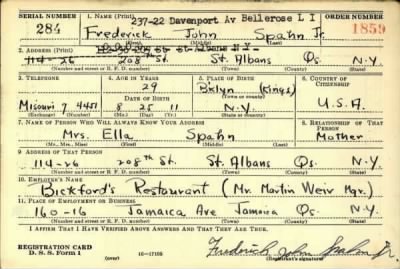 SERIAL NUMBER 1. NAME (Print) ORDER NUMBER
237-22 Davenport Av Bellerose L I
284 Frederick John Spahn Jr. 1859
(First) (Middle) (Last)
2. ADDRESS (Print)
114-26 208th St. St. Albans Qs. N.Y.
(Number and street or R. F. D. number) (Town) (County) (State)
3. TELEPHONE 4. AGE IN YEARS 5. PLACE OF BIRTH 6. COUNTRY OF CITIZENSHIP
29 Bklyn (Kings)
DATE OF BIRTH (Town or county)
Missouri 7 4451 8 25 11 N.Y. U.S.A.
(Exchange) (Number) (Mo.) (Day) (Yr.) (State or country)
7. NAME OF PERSON WHO WILL ALWAYS KNOW YOUR ADDRESS 8. RELATIONSHIP OF THAT PERSON
Mrs. Ella Spahn Mother
(Mr., Mrs., Miss) (First) (Middle) (Last)
9. ADDRESS OF THAT PERSON
114-26 208th St. St. Albans Qs. N.Y.
(Number and street or R. F. D. number) (Town) (County) (State)
10. EMPLOYER'S NAME
Bickford's Restaurant (Mr. Martin Weir Mgr.)
11. PLACE OF EMPLOYMENT OR BUSINESS
160-16 Jamaica Ave Jamaica Qs N.Y.
(Number and street or R. F. D. number) (Town) (County) (State)
I AFFIRM THAT I HAVE VERIFIED ABOVE ANSWERS AND THAT THEY ARE TRUE.
REGISTRATION CARD
D. S. S. Form 1 (over) 16—17105 Frederick John Spahn Jr.
(Registrant's signature)